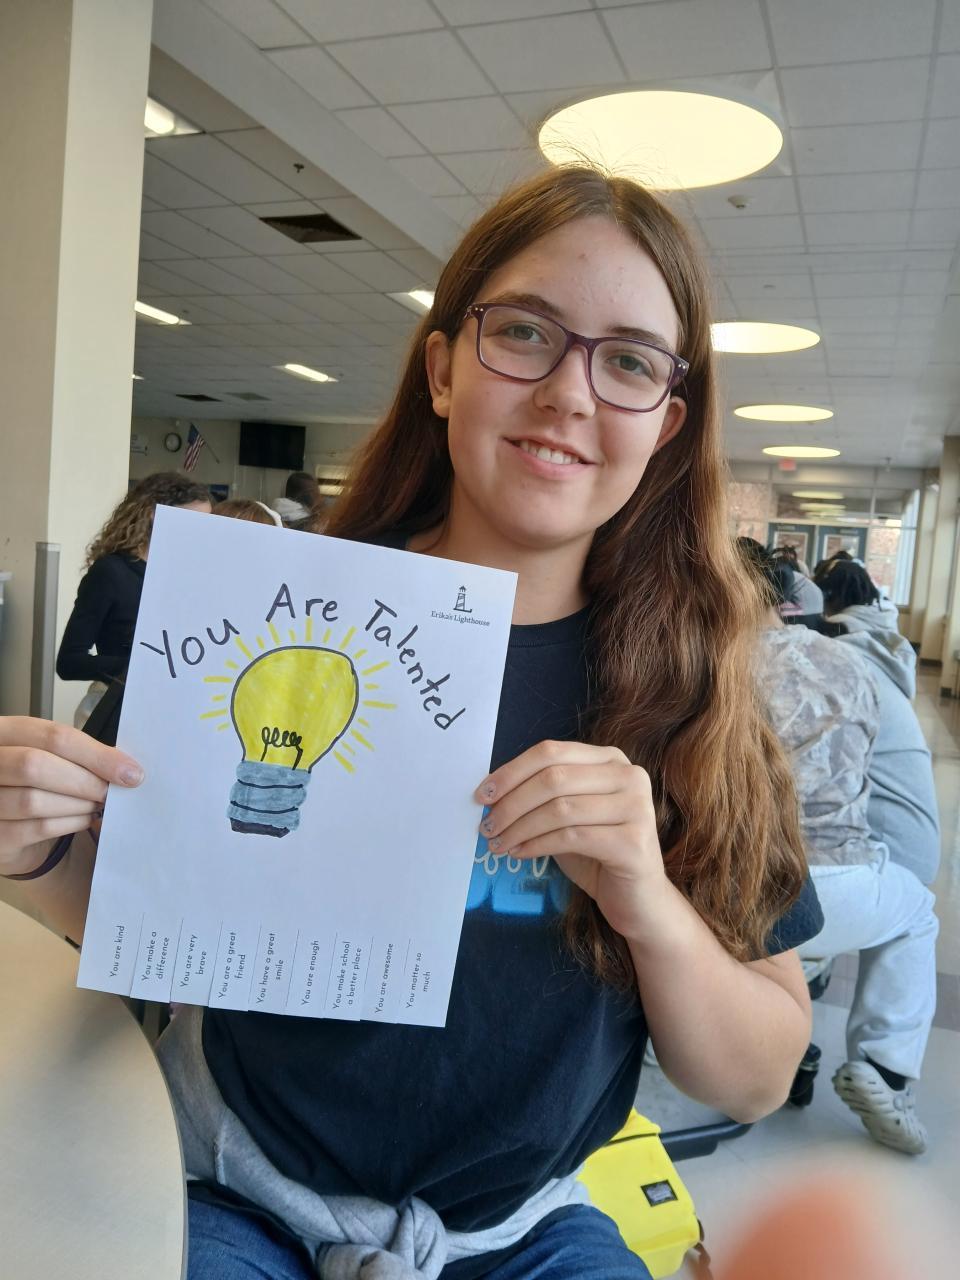 You Are Talented
Erika's Lighthouse
You are kind
You make a
difference
You are very
brave
You are a great
friend
You have a great
smile
You are enough
You make school
a better place
You are awesome
You matter so
much